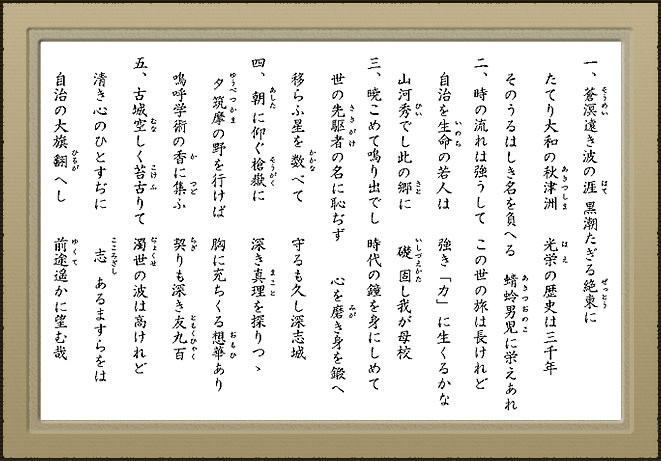 一、蒼溟遠き波の涯 黒潮たぎる絶東に
たてり大和の秋津洲 光栄の歴史は三千年
そのうるはしき名を負へる 蜻蛉男児に栄えあれ
二、時の流れは強うして この世の旅は長けれど
自治を生命の若人は 強き「力」に生くるかな
山河秀でし此の郷に 礎固し我が母校
三、暁こめて鳴り出でし 時代の鐘を身にしめて
世の先駆者の名に恥ぢず 心を磨き身を鍛へ
移らふ星を数べて 守るも久し深志城
四、朝に仰ぐ槍嶽に 深き真理を探りつゝ
夕筑摩の野を行けば 胸に充ちくる想華あり
嗚呼学術の香に集ふ 契りも深き友九百
五、古城空しく苔古りて 濁世の波は高けれど
清き心のひとすぢに 志あるますらをは
自治の大旗翻へし 前途遥かに望む哉